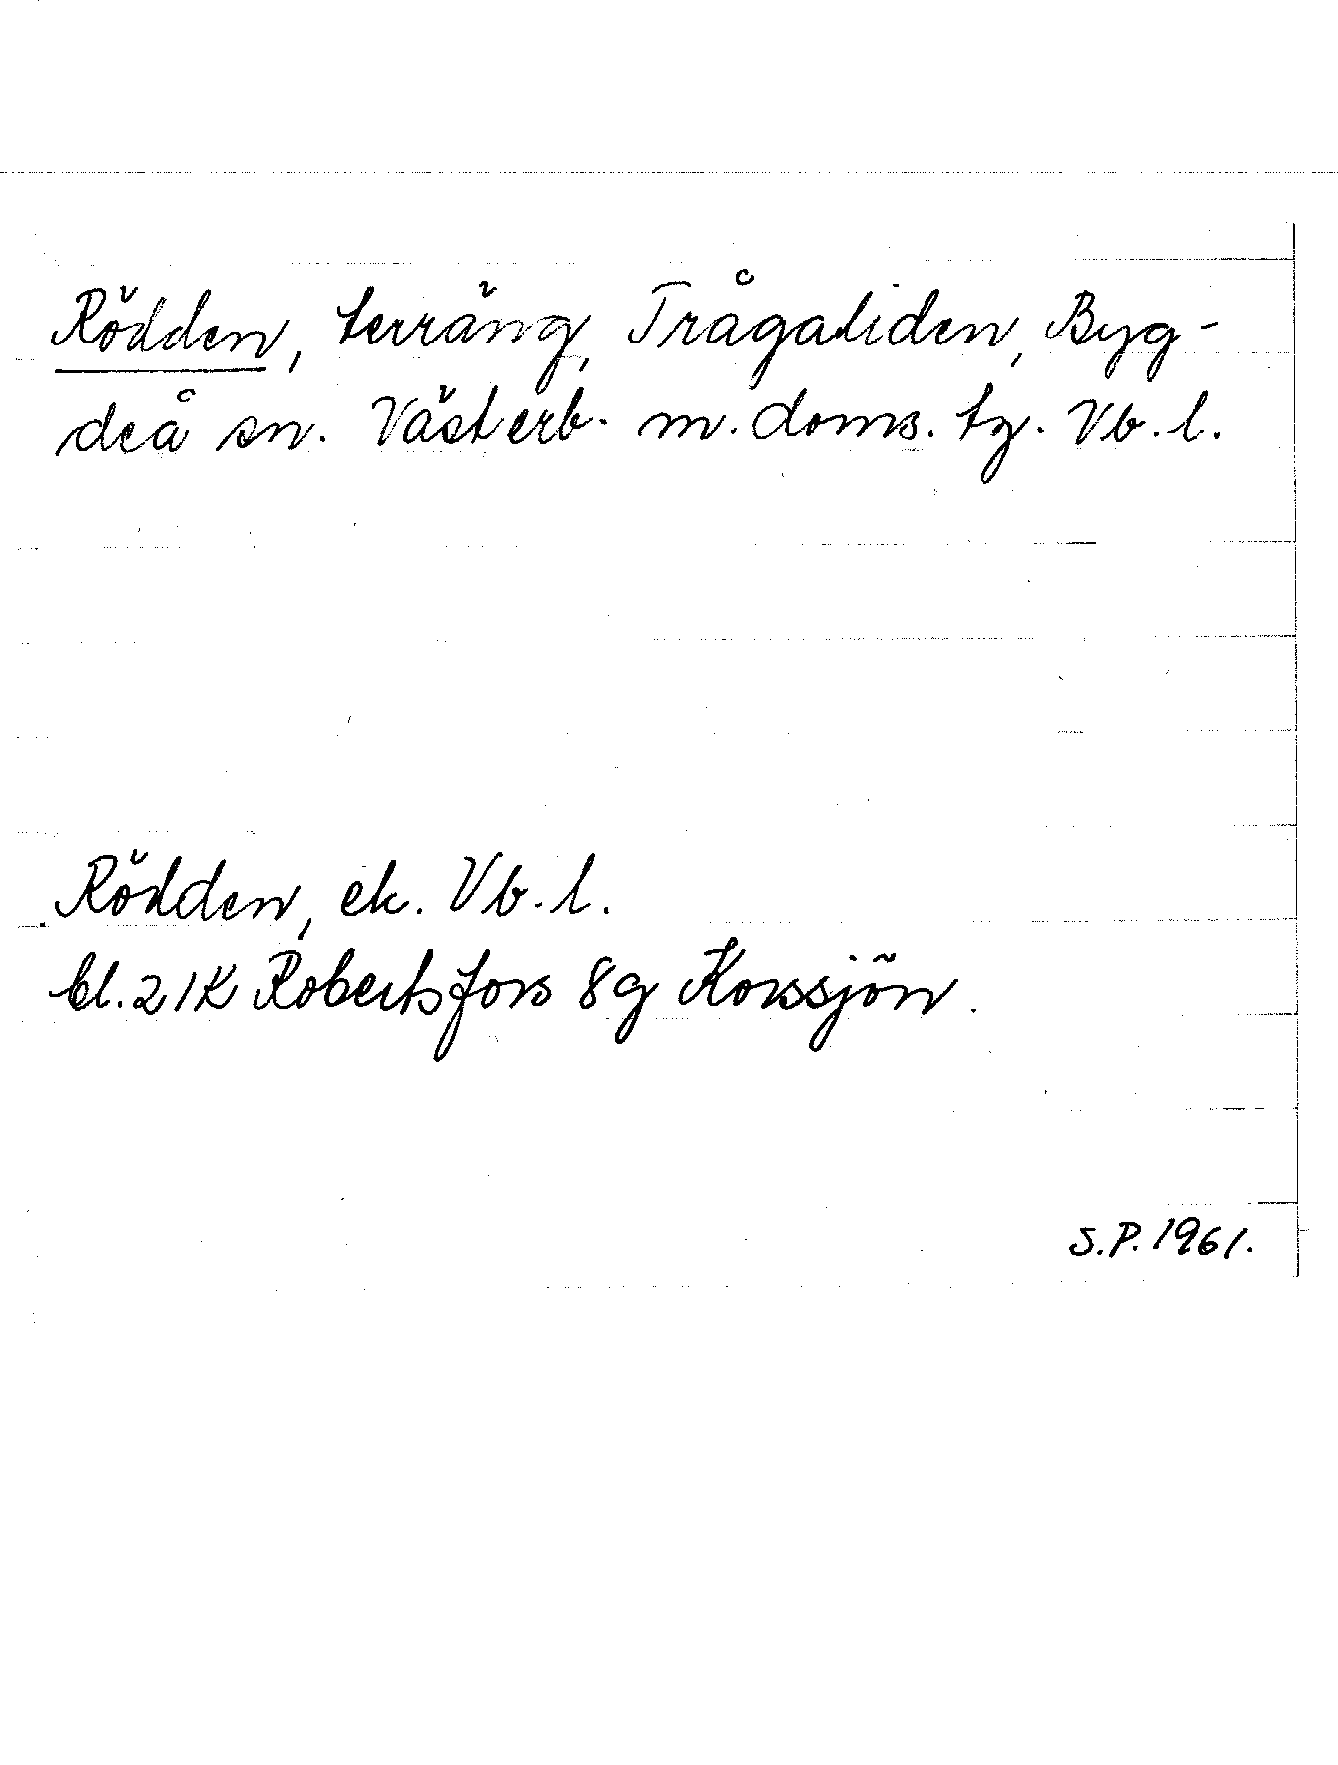 Rödden, terräng, Trågaliden, Byg-
deå sn. Västerb. m. doms. tg. Vb. l.
Rödden, ek. Vb. l.
bl. 21K Robertsfors 8g Korssjön.
S.P. 1961.